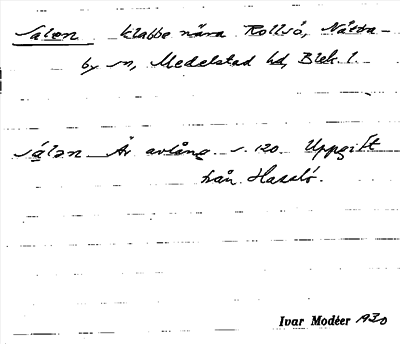 Salen klabbe nära Rollsö, Nätra-
by sn, Medelstad hd, Blek. l.
sálən Är avlång s. 120. Uppgift
från Hasslö.
Ivar Modéer 1930